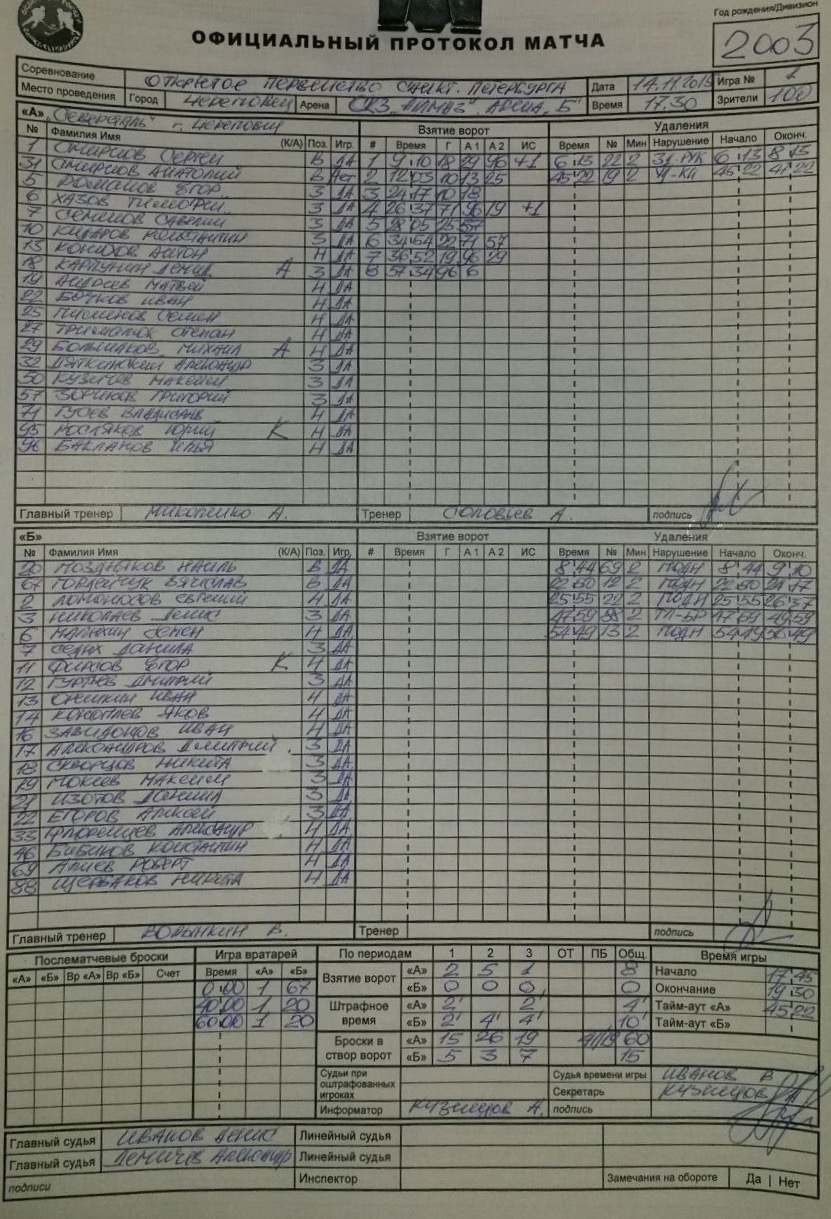 Год рождения/Дивизион
ОФИЦИАЛЬНЫЙ ПРОТОКОЛ МАТЧА
2003
Соревнование ОТКРЫТОЕ ПЕРВЕНСТВО САНКТ-ПЕТЕРБУРГА Дата Игра № 2
Место проведения Город ЧЕРЕПОВЕЦ Арена СКЗ "АЛМАЗ", АРЕНА "Б" Время 17.30 Зрители 100
«А» "СЕВЕРСТАЛЬ" г. ЧЕРЕПОВЕЦ Взятие ворот Удаления
№ Фамилия Имя (К/А) Поз. Игр. # Время Г А 1 А 2 ИС Время № Мин Нарушение Начало Оконч.
1 СМИРНОВ СЕРГЕЙ В ДА 1 9 10 18 29 96 +1 6 13 22 2 6 13 8 13
31 СМИРНОВ АНАТОЛИЙ В НЕТ 2 12 03 10 13 25 45 22 19 2 45 22 47 22
5 РОМАНОВ ЕГОР З ДА 3 24 17 10 18
6 ХАЗОВ ТИМОФЕЙ З ДА 4 26 37 71 96 19 +1
7 СЕМЕНОВ САВЕЛИЙ З ДА 5 28 05 25 57
10 КОНСТАНТИН З ДА 6 34 54 22 71 57
13 АНТОН Н ДА 7 36 52 19 96 29
18 КАРПУНИН А З ДА 8 57 34 96 6
19 АНДРЕЕВ МАТВЕЙ Н ДА
22 БОЧКОВ ИВАН Н ДА
25 СЕМЕН Н ДА
27 СТЕПАН Н ДА
29 БОЛЬШАКОВ МИХАИЛ А Н ДА
32 АЛЕКСАНДР З ДА
50 КУЗИЧЕВ МАКСИМ З ДА
57 ЗОРИКОВ ГРИГОРИЙ З ДА
71 ГУСЕВ ВЛАДИСЛАВ Н ДА
95 РОСЛЯКОВ ЮРИЙ К Н ДА
96 БАКЛАНОВ ИЛЬЯ Н ДА
Главный тренер А. Тренер СОЛОВЬЕВ А. подпись
«Б» Взятие ворот Удаления
№ Фамилия Имя (К/А) Поз. Игр. # Время Г А 1 А 2 ИС Время № Мин Нарушение Начало Оконч.
20 ПОЗДНЯКОВ НАИЛЬ В ДА 8 44 69 2 ПОДН 8 44 9 10
67 ГОРДЕЙЧУК ВЯЧЕСЛАВ В ДА 22 50 12 2 ПОДН 22 50 24 17
2 ЛОМОНОСОВ ЕВГЕНИЙ Н ДА 25 55 22 2 ПОДН 25 55 26 37
3 НИКОЛАЕВ ДЕНИС З ДА 47 59 88 2 47 59 49 59
6 СЕМЕН Н ДА 54 49 13 2 ПОДН 54 49 56 49
7 СЕДЫХ ДАНИЛА З ДА
11 ФИРСОВ ЕГОР К Н ДА
12 ГУРЬЕВ ДМИТРИЙ З ДА
13 ИВАН Н ДА
14 КОНОПЛЕВ ЯКОВ Н ДА
16 ЗАВИДОНОВ ИВАН Н ДА
17 АЛЕКСАНДРОВ ДМИТРИЙ З ДА
18 СКВОРЦОВ НИКИТА З ДА
19 МОКЕЕВ МАКСИМ З ДА
21 ИЗОТОВ ДАНИИЛ З ДА
22 ЕГОРОВ АЛЕКСЕЙ З ДА
33 АЛЕКСАНДР Н ДА
46 БИБИКОВ КОНСТАНТИН Н ДА
69 АЛИЕВ РОБЕРТ Н ДА
88 ЩЕРБАКОВ НИКИТА Н ДА
Главный тренер В. Тренер подпись
Послематчевые броски Игра вратарей По периодам 1 2 3 ОТ ПБ Общ. Время игры
«А» «Б» Вр «А» Вр «Б» Счет Время «А» «Б» Взятие ворот «А» 2 5 1 8 Начало 17 45
0 00 1 67 «Б» 0 0 0 0 Окончание 19 30
40 00 1 20 Штрафное время «А» 2' 2' 4' Тайм-аут «А» 45 22
60 00 1 20 «Б» 2' 4' 4' 10' Тайм-аут «Б»
Броски в створ ворот «А» 15 26 19 60
«Б» 5 3 7 15
Судьи при оштрафованных игроках Судья времени игры ИВАНОВ В
Секретарь КУЗНЕЦОВ А
Информатор КУЗНЕЦОВ А. подпись
Главный судья ИВАНОВ ДЕНИС Линейный судья
Главный судья ДЕМИЧЕВ АЛЕКСАНДР Линейный судья
подписи Инспектор Замечания на обороте Да | Нет